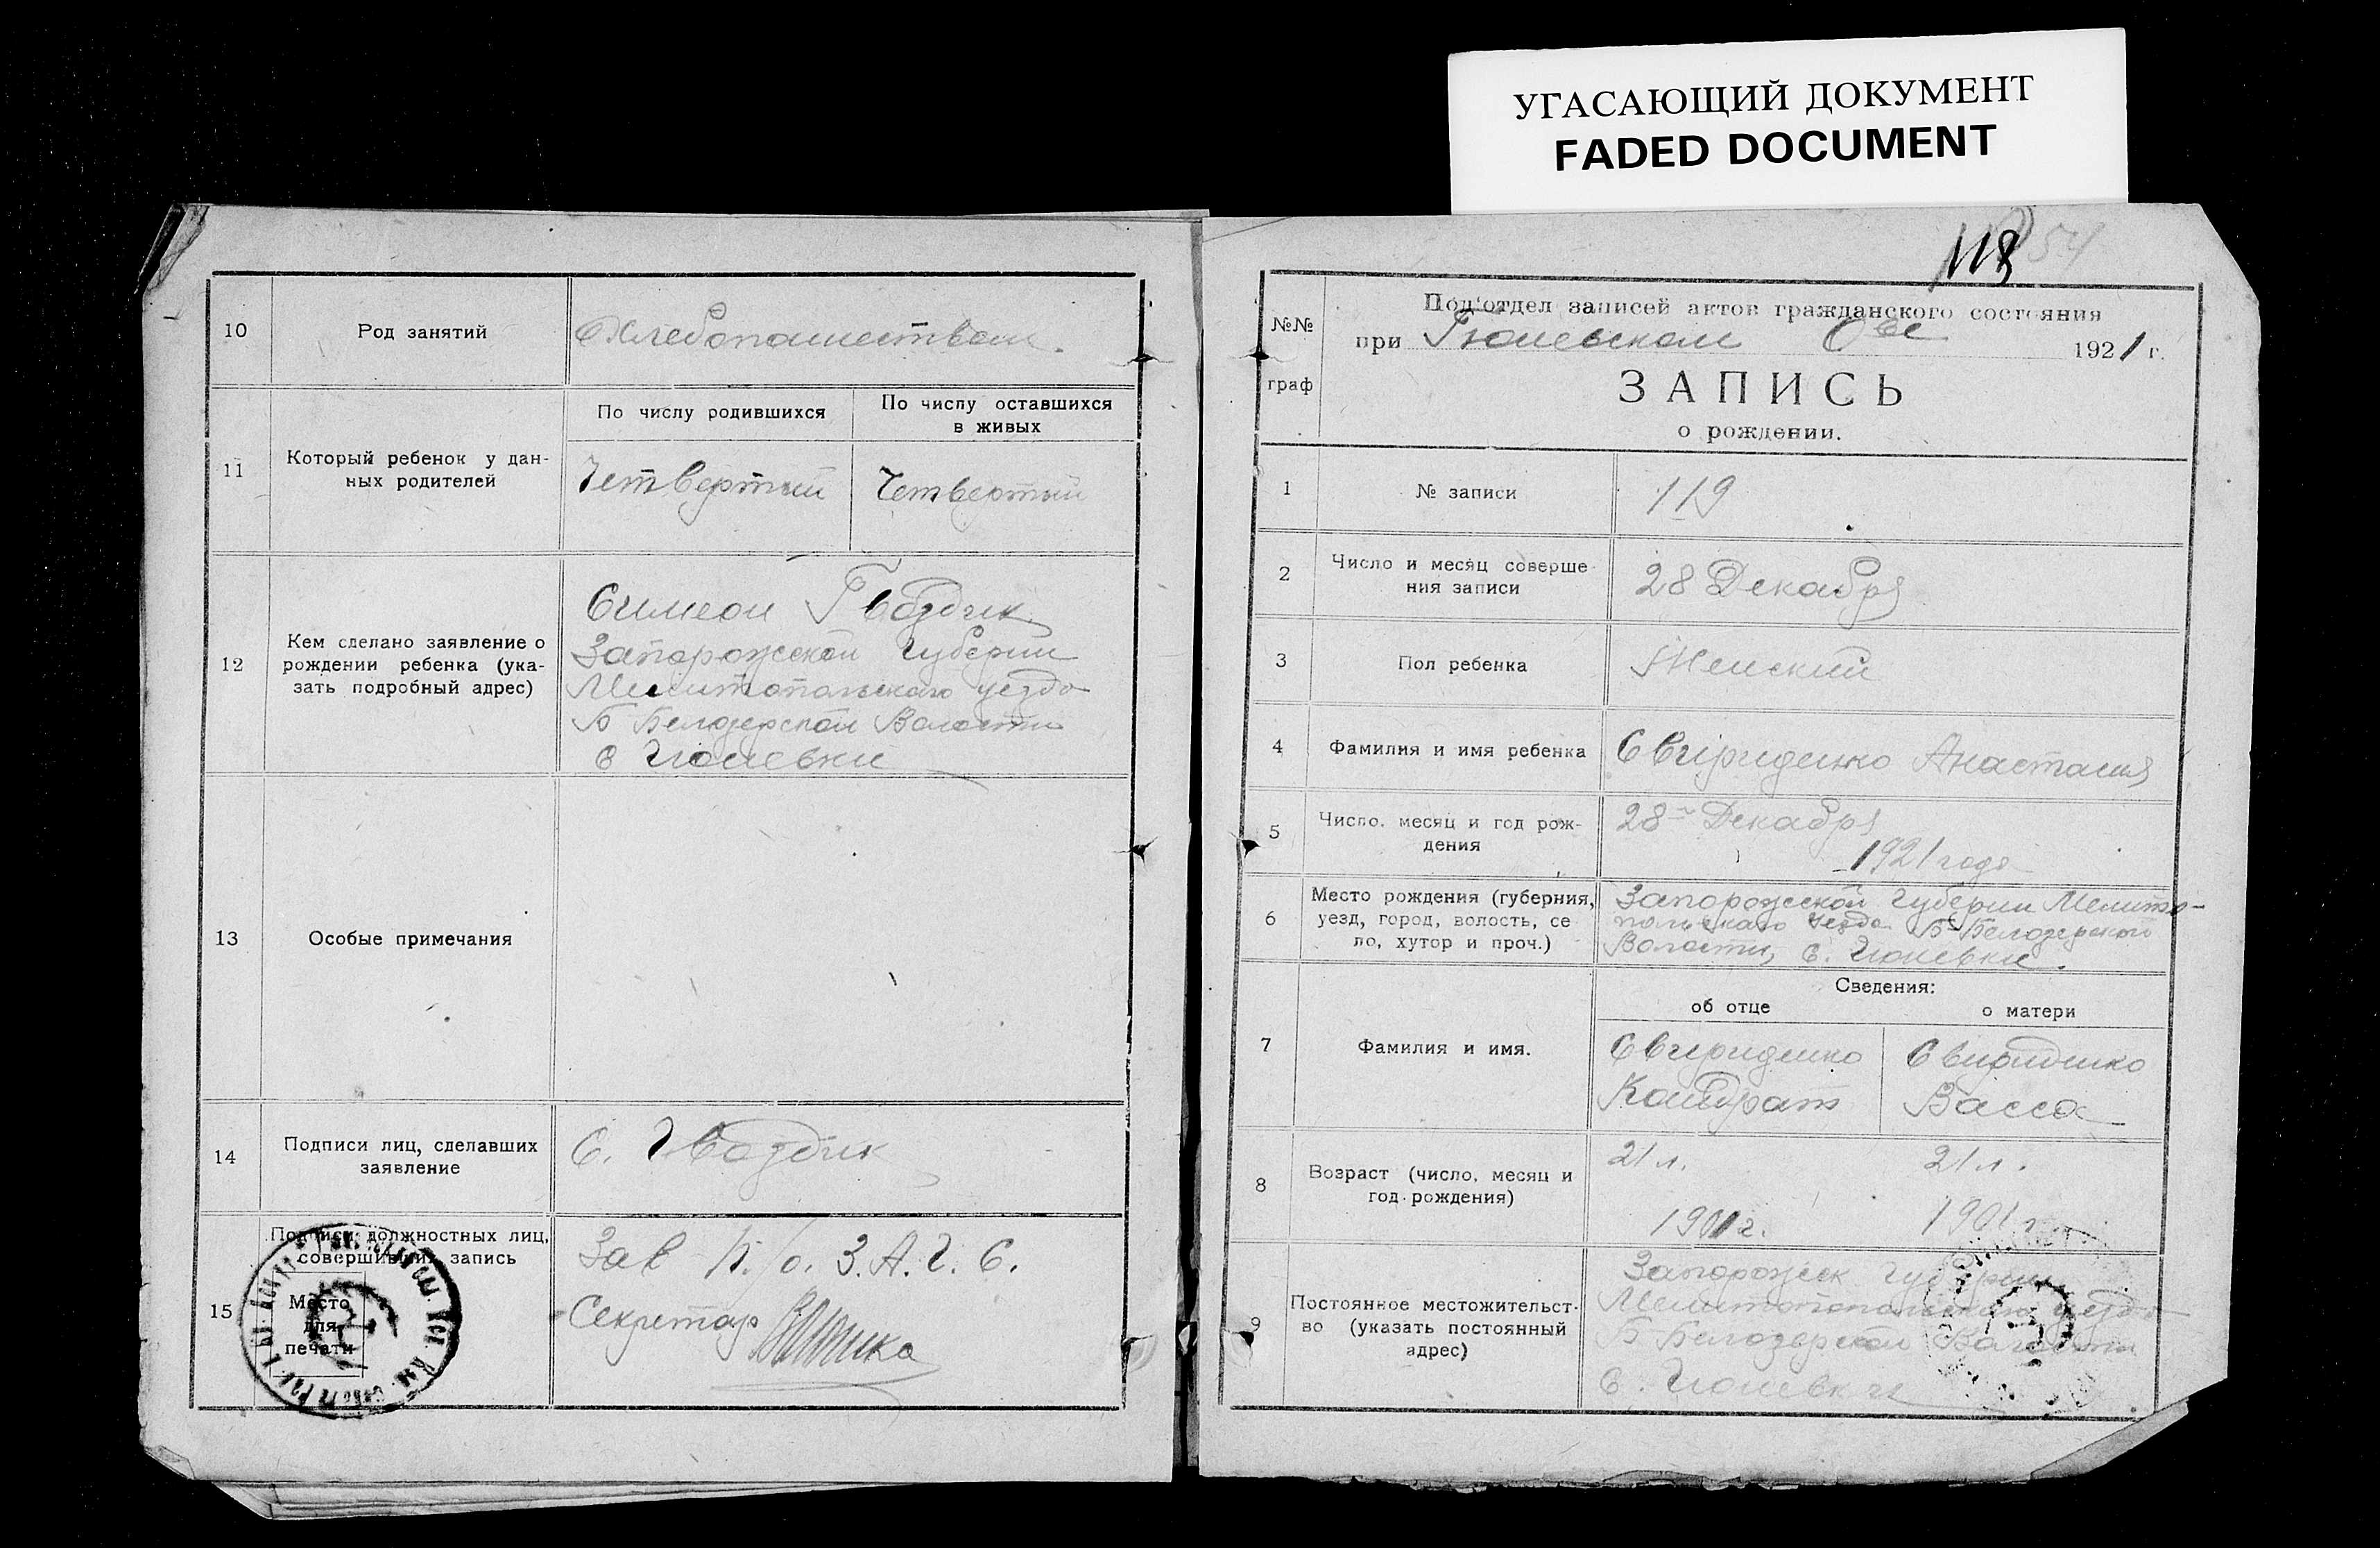 УГАСАЮЩИЙ ДОКУМЕНТ
FADED DOCUMENT
10
Род занятий
Хлебопашеством.
11
Который ребенок у дан-
ных родителей
По числу родившихся
Четвертый
По числу оставшихся
в живых
Четвертый
12
Кем сделано заявление о
рождении ребенка (ука-
зать подробный адрес)
Симеон Гвоздик
Запорожской Губернии
Мелитопольскаго уезда
Б Белозерской Волости
С Гюневки
13
Особые примечания
14
Подписи лиц, сделавших
заявление
С. Гвоздик
15
Подписи должностных лиц,
совершивших запись
Место
для
печати
Зав П. о. З. А. Г. С.
Секретарь
118
54
№№
граф
Под'отдел записей актов гражданского состояния
при Гюневском 1921 г.
ЗАПИСЬ
о рождении.
1
№ записи
119
2
Число и месяц соверше-
ния записи
28 Декабря
3
Пол ребенка
Женский
4
Фамилия и имя ребенка
Свириденко Анастасия
5
Число, месяц и год рож-
дения
28 Декабря
1921 года
6
Место рождения (губерния,
уезд, город, волость, се
ло, хутор и проч.)
Запорожской Губернии Мелито-
польскаго Уезда Б-Белозерской
Волости, С. Гюневке.
Сведения:
об отце
о матери
7
Фамилия и имя.
Свириденко
Кондрат
Свириденко
Васса
8
Возраст (число, месяц и
год рождения)
21 л.
1901 г.
21 л.
1901 г.
9
Постоянное местожительст-
во (указать постоянный
адрес)
Запорожск Губернии
Мелитопопольскаго уезда
Б Белозерской Волости
С. Гюневки